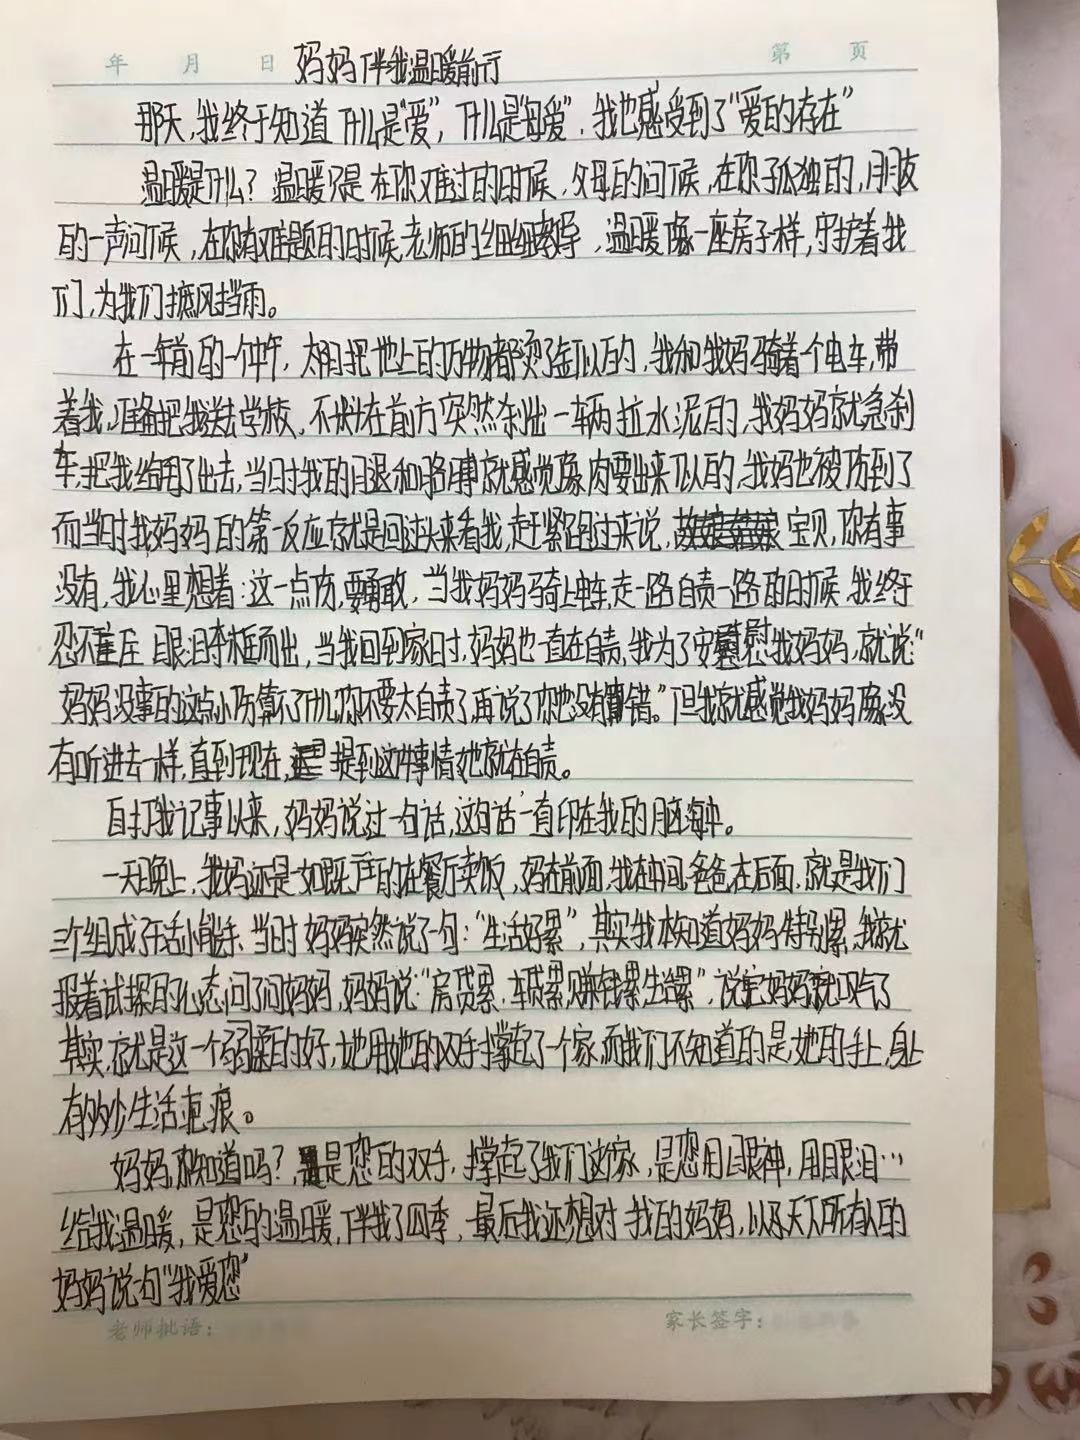 年 月 日 妈妈伴我温暖前行 第 页
那天,我终于知道什么是“爱”,什么是“母爱”,我也感受到了“爱的存在”
温暖是什么?温暖只是在你难过的时候,父母的问候,在你孤独的,朋友
的一声问候,在你有难题的时候,老师的细细教导,温暖像一座房子样,守护着我
们,为我们摭风挡雨。
在一年前的一个中午,太阳把地上的万物都烫了金似的,我和我妈骑着一个电车,带
着我,准备把我送去学校,不料在前方突然刹出一辆拉水泥的,我妈妈就急刹
车,把我给甩了出去,当时我的腿和胳膊就感觉像肉要出来了似的,我妈也被伤到了
而当时我妈妈的第一反应就是回过头来看我,赶紧跑过来说,宝贝,你有事
没有,我心里想着:这一点伤,要勇敢,当我妈妈骑上电车,走一路自责一路的时候,我终于
忍不住 眼泪夺框而出,当我回到家时,妈妈也一直在自责,我为了安慰我妈妈,就说:“
妈妈没事的这点小伤算不了什么你不要太自责了,再说了你也没有错。”但我就感觉我妈妈像没
有听进去一样,直到现在,提到这件事情她就在自责。
自打我记事以来,妈妈说过一句话,这句话一直印在我的脑海中。
一天晚上,我妈还是一如既往的在餐厅卖饭,妈在前面,我在中间,爸爸在后面,就是我们
三个组成了干活小能手,当时妈妈突然说了一句:“生活好累”,其实我本知道妈妈特别累,我就
报着试探的心态问了问妈妈,妈妈说:“房贷累,车贷累,赚钱累生活累”,说完妈妈就叹气了
其实,就是这一个弱柔的好,她用她的双手撑起了一个家,而我们不知道的是,她的手上,身上
有多少生活疤痕。
妈妈,你知道吗?是您的双手,撑起了我们这个家,是您用眼神,用眼泪…
给我温暖,是您的温暖,伴我了四季,最后我还想对我的妈妈,以及天下所有人的
妈妈说一句“我爱您”
老师批语: 家长签字: